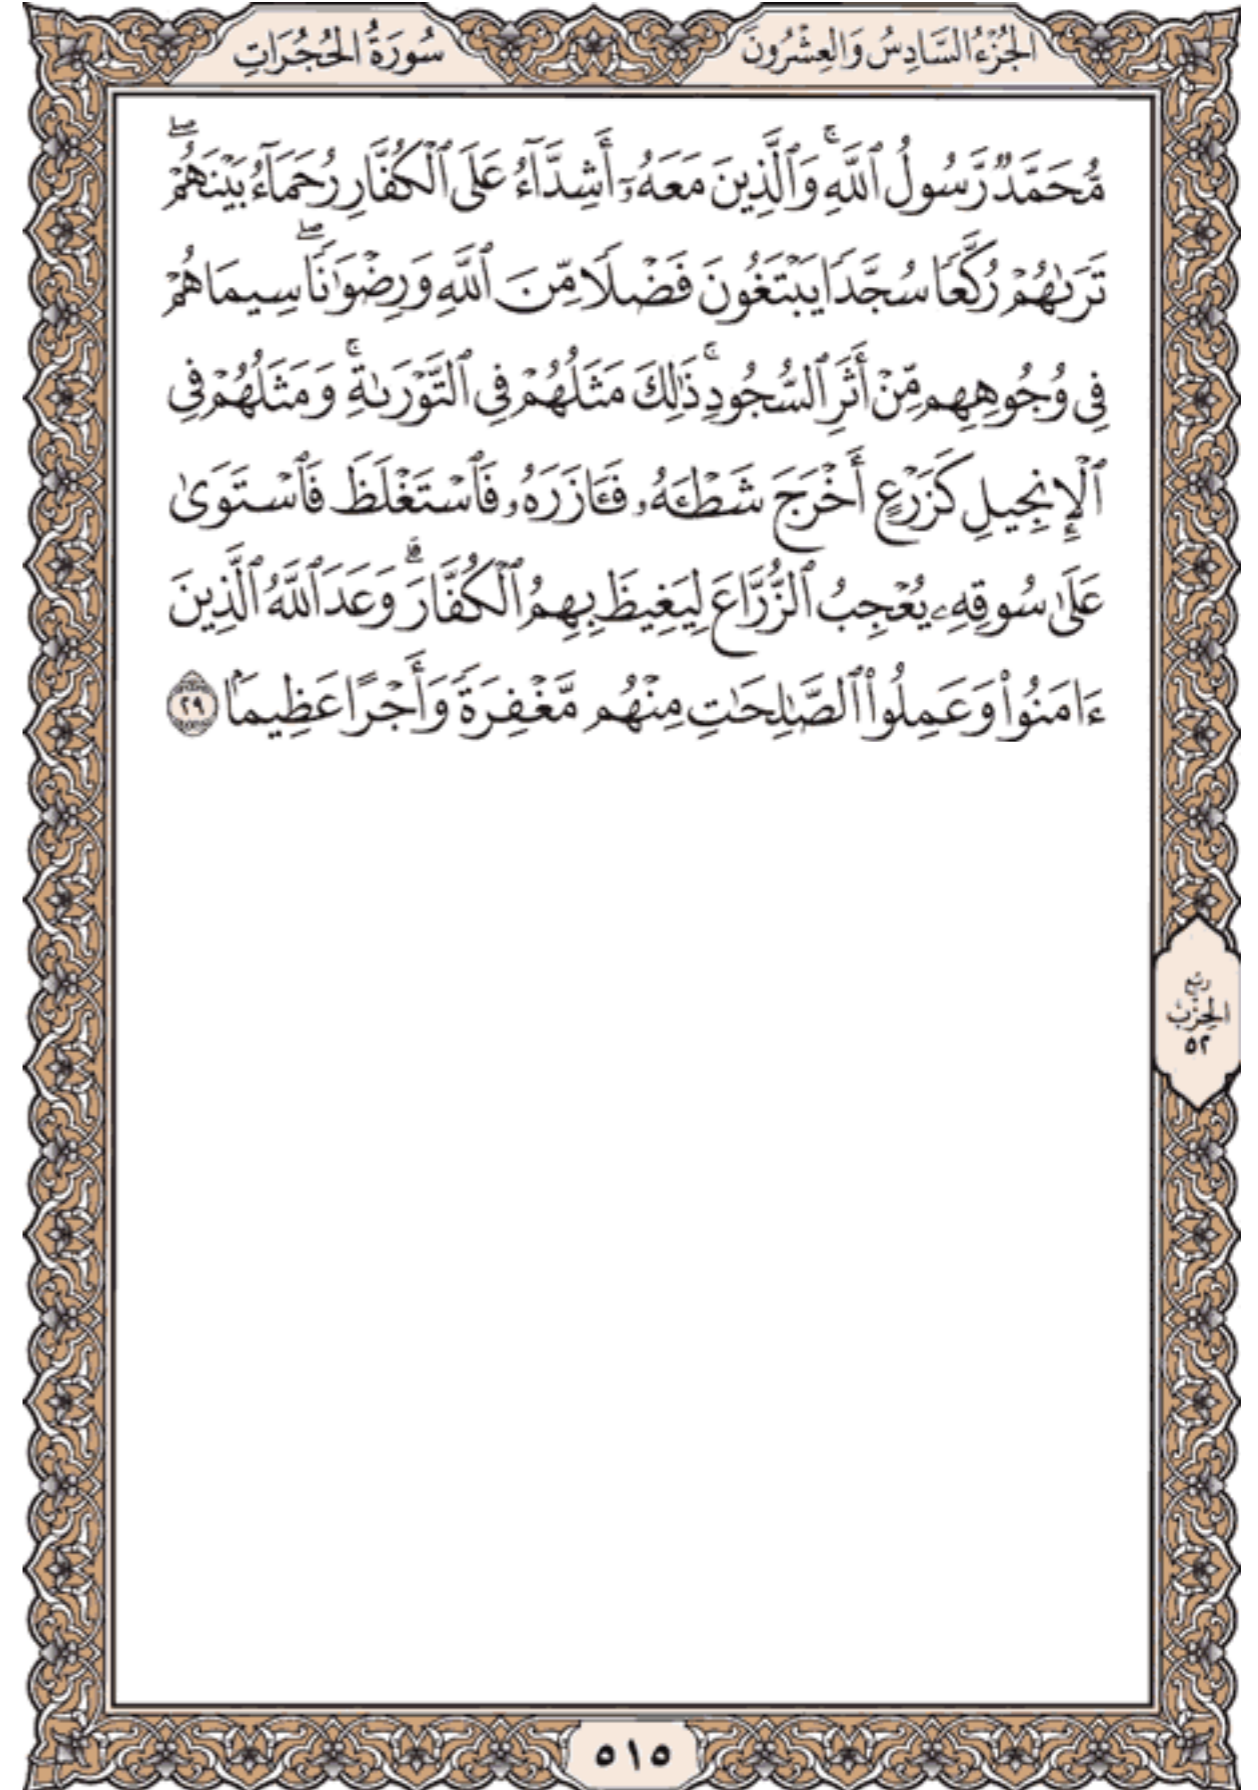 الجُزْءُ السَّادِسُ وَالعِشْرُونَ
سُورَةُ الحُجُرَاتِ
مُّحَمَّدٞ رَّسُولُ ٱللَّهِۚ وَٱلَّذِينَ مَعَهُۥٓ أَشِدَّآءُ عَلَى ٱلۡكُفَّارِ رُحَمَآءُ بَيۡنَهُمۡۖ
تَرَىٰهُمۡ رُكَّعٗا سُجَّدٗا يَبۡتَغُونَ فَضۡلٗا مِّنَ ٱللَّهِ وَرِضۡوَٰنٗاۖ سِيمَاهُمۡ
فِي وُجُوهِهِم مِّنۡ أَثَرِ ٱلسُّجُودِۚ ذَٰلِكَ مَثَلُهُمۡ فِي ٱلتَّوۡرَىٰةِۚ وَمَثَلُهُمۡ فِي
ٱلۡإِنجِيلِ كَزَرۡعٍ أَخۡرَجَ شَطۡـَٔهُۥ فَـَٔازَرَهُۥ فَٱسۡتَغۡلَظَ فَٱسۡتَوَىٰ
عَلَىٰ سُوقِهِۦ يُعۡجِبُ ٱلزُّرَّاعَ لِيَغِيظَ بِهِمُ ٱلۡكُفَّارَۗ وَعَدَ ٱللَّهُ ٱلَّذِينَ
ءَامَنُواْ وَعَمِلُواْ ٱلصَّٰلِحَٰتِ مِنۡهُم مَّغۡفِرَةٗ وَأَجۡرًا عَظِيمَۢا ٢٩
ربع
الحزب
٥٢
٥١٥